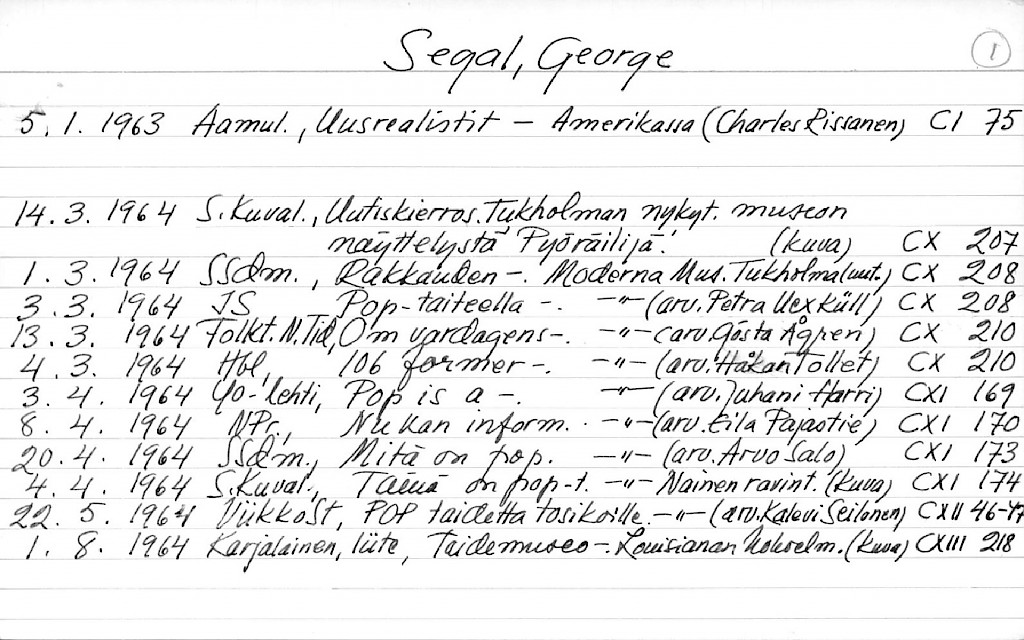 Segal, George 1
5. 1. 1963 Aamul., Uusrealistit - Amerikassa (Charles Rissanen) CI 75
14. 3. 1964 S.Kuval., Uutiskierros. Tukholman nykyt. museon
näyttelystä "Pyöräilijä". (kuva) CX 207
1. 3. 1964 SSdm., Rakkauden -. Moderna Mus. Tukholma (uut.) CX 208
3. 3. 1964 IS Pop-taiteella -. -"- (arv. Petra Uexküll) CX 208
13. 3. 1964 Folkt. N. Tid, Om vardagens -. -"- (arv. Gösta Ågren) CX 210
4. 3. 1964 Hbl, 106 former -. -"- (arv. Håkan Tollet) CX 210
3. 4. 1964 Yo-lehti, Pop is a -. -"- (arv. Juhani Harri) CXI 169
8. 4. 1964 NPr., Nu kan inform. -"- (arv. Eila Pajastie) CXI 170
20. 4. 1964 SSdm., Mitä on pop. -"- (arv. Arvo Salo) CXI 173
4. 4. 1964 S.Kuval., Tämä on pop-t. -"- Nainen ravint. (kuva) CXI 174
22. 5. 1964 ViikkoSt, POP taidetta tosikoille. -"- (arv. Kalevi Seilonen) CXII 46-47
1. 8. 1964 Karjalainen, liite, Taidemuseo -. Louisianan kokoelm. (kuva) CXIII 218